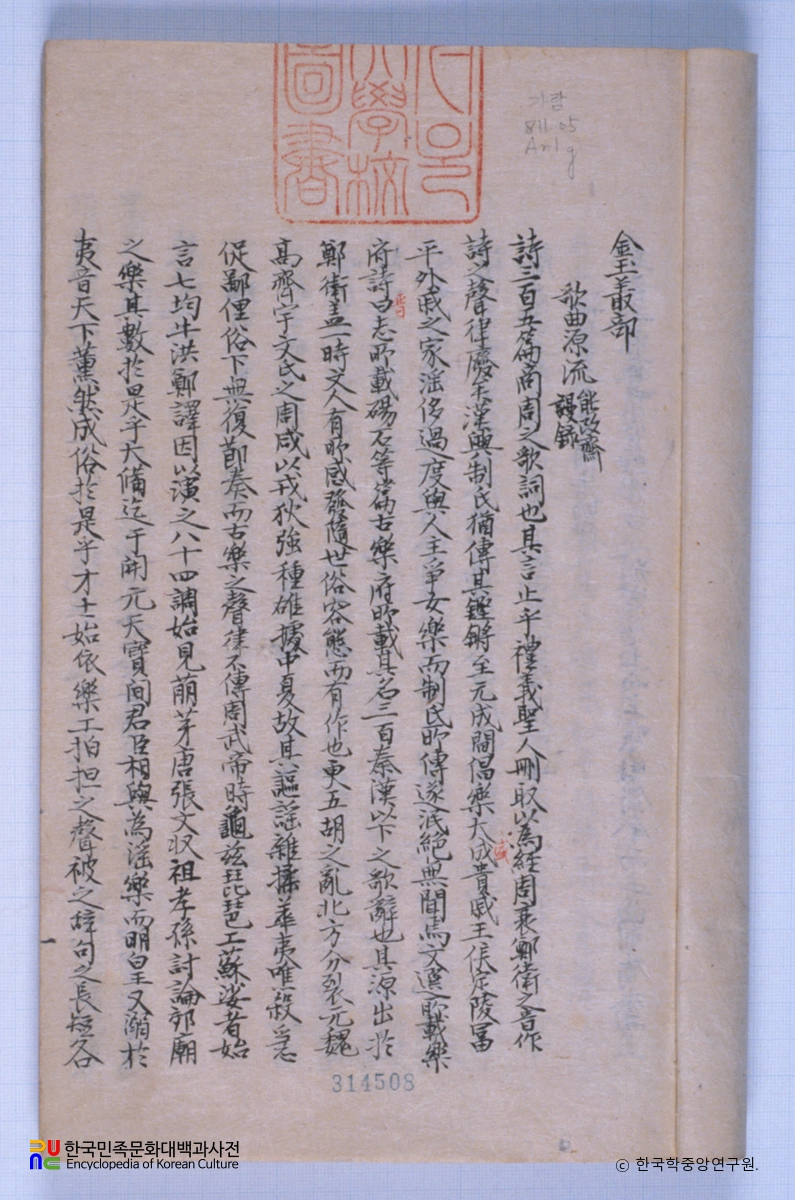 가람
811.05
An1g
大學校
圖書
金玉叢部
歌曲源流 能改齋謾錄
詩三百五篇商周之歌詞也其言止乎禮義聖人刪取以爲經周衰鄭衛之音作
詩之聲律廢矣漢興制氏猶傳其鏗鏘至元成間倡樂大成盛貴戚王侯定陵冨
平外戚之家淫侈過度與人主爭女樂而制氏所傳遂泯絶無聞焉文選所載樂
府詩曰晉志所載碣石等篇古樂府所載其名三百秦漢以下之歌辭也其源出於
鄭衛盖一時文人有所感發隨世俗容態而有作也更五胡之亂北方分裂元魏
高齊宇文氏之周咸以戎狄強種雄據中夏故其謳謠雜揉華夷唯殺急
促鄙俚俗下無復節奏而古樂之聲律不傳周武帝時龜玆琵琶工蘇婆者始
言七均牛洪鄭譯因以演之八十四調始見萠芽唐張文收祖孝孫討論郊廟
之樂其數於是乎大備迄于開元天寶間君臣相與爲淫樂而明皇又溺於
夷音天下薰然成俗於是乎才士始依樂工拍担之聲被之辞句之長短各
314508
한국민족문화대백과사전
Encyclopedia of Korean Culture
© 한국학중앙연구원.